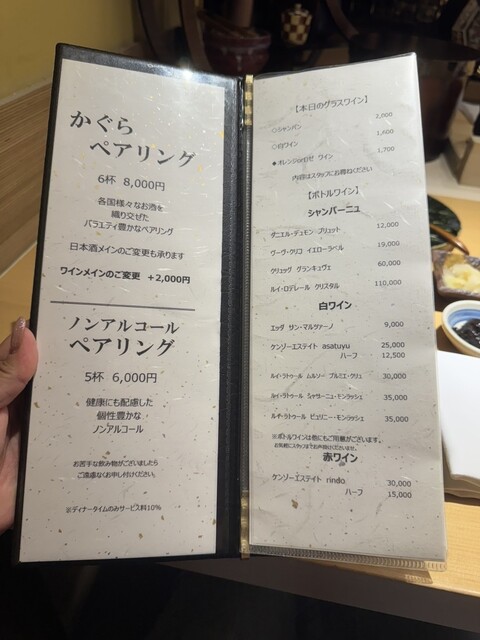 かぐら
ペアリング
6杯 8,000円
各国様々なお酒を
織り交ぜた
バラエティ豊かなペアリング
日本酒メインのご変更も承ります
ワインメインのご変更 +2,000円
ノンアルコール
ペアリング
5杯 6,000円
健康にも配慮した
個性豊かな
ノンアルコール
お苦手な飲み物がございましたら
ご遠慮なくお申し付けください。
※ディナータイムのみサービス料10%
【本日のグラスワイン】
◇シャンパン 2,000
◇白ワイン 1,600
◆オレンジorロゼ ワイン 1,700
内容はスタッフにお尋ねください
【ボトルワイン】
シャンパーニュ
ダニエル・デュモン ブリュット 12,000
ヴーヴ・クリコ イエローラベル 19,000
クリュッグ グランキュヴェ 60,000
ルイ・ロデレール クリスタル 110,000
白ワイン
エッダ サン・マルツァーノ 9,000
ケンゾーエステイト asatuyu 25,000
ハーフ 12,500
ルイ・ラトゥール ムルソー プルミエ・クリュ 30,000
ルイ・ラトゥール シャサーニュ・モンラッシェ 35,000
ルイ・ラトゥール ピュリニー・モンラッシェ 35,000
※ボトルワインは他にもご用意がございます。
お気軽にスタッフまでお声掛けくださいませ。
赤ワイン
ケンゾーエステイト rindo 30,000
ハーフ 15,000